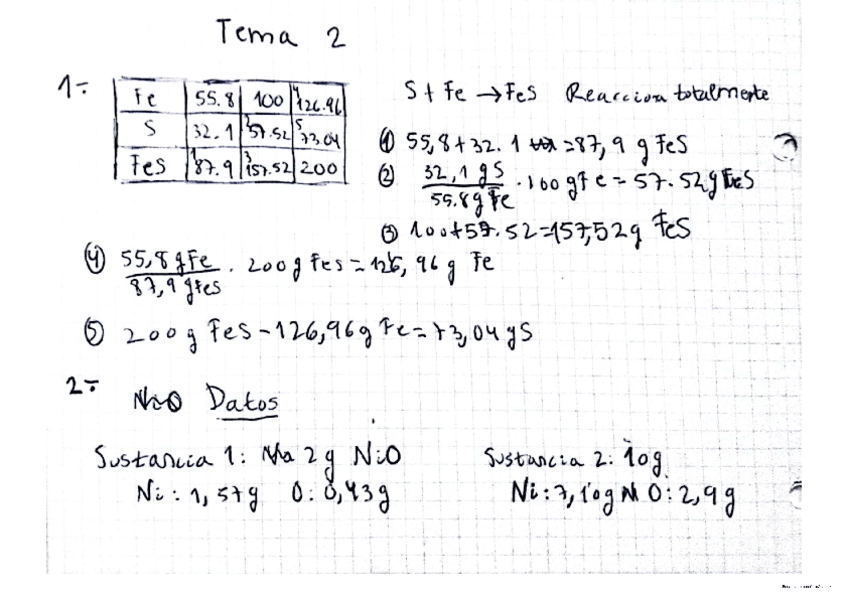 Tema 2
1=
Fe 55.8 100 4 126.96
S 32.1 2 57.52 5 73,04
FeS 1 87.9 3 157.52 200
S + Fe → FeS Reaccion totalmente
① 55,8+32.1 = 87,9 g FeS
② 32,1 gS / 55.8g Fe · 100 gFe = 57.52g
③ 100+57.52=157,52g FeS
④ 55,8 gFe / 87,9 gFes · 200g Fes = 126,96 g Fe
⑤ 200g FeS - 126,96g Fe = 73,04 gS
2=
Datos
Sustancia 1: 2g NiO
Ni: 1,57g O: 0,43g
Sustancia 2: 10g
Ni: 7,10g O: 2,9g